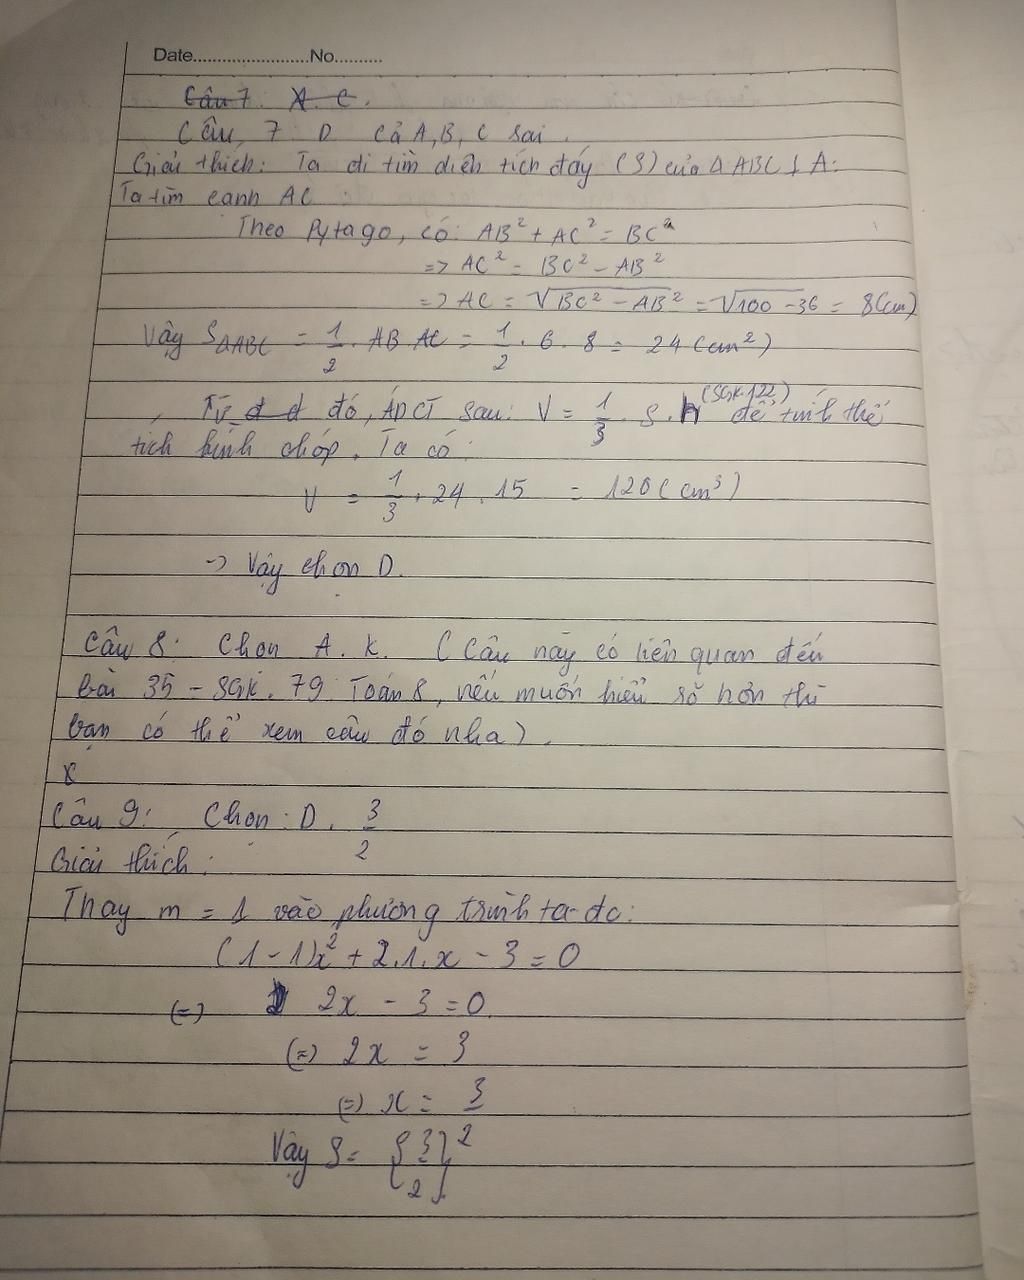 Date........................No..........
Câu 7. A C.
Câu 7 D Cả A, B, C sai.
Giải thích: Ta đi tìm diện tích đáy (S) của Δ ABC ⊥ A:
Ta tìm cạnh AC
Theo Pytago, có: AB² + AC² = BC²
=> AC² = BC² - AB²
=> AC = √BC² - AB² = √100 - 36 = 8(cm)
Vậy SΔABC = 1/2 . AB AC = 1/2 . 6 . 8 = 24 (cm²)
Từ đ đ đó, ÁDCT sau: V = 1/3 . S . h (SGK.122) để tính thể
tích hình chóp. Ta có:
V = 1/3 . 24 . 15 = 120 (cm³)
-> Vậy chọn D.
Câu 8: Chọn A. K. (Câu này có liên quan đến
bài 35 - SGK. 79 Toán 8, nếu muốn hiểu rõ hơn thì
bạn có thể xem câu đó nha).
Câu 9: Chọn: D. 3/2
Giải thích:
Thay m = 1 vào phương trình ta đc:
(1 - 1)x² + 2.1.x - 3 = 0
(=) 2x - 3 = 0
(=) 2x = 3
(=) x = 3/2
Vậy S = {3/2}